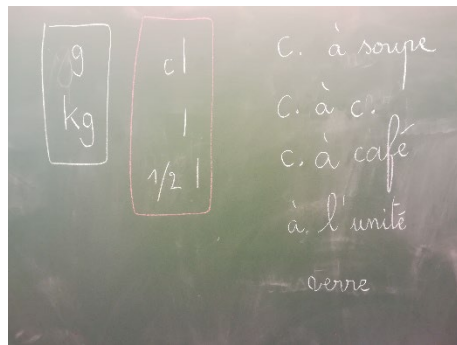 g
kg
cl
l
1/2 l
c. à soupe
c. à c.
c. à café
à l'unité
verre